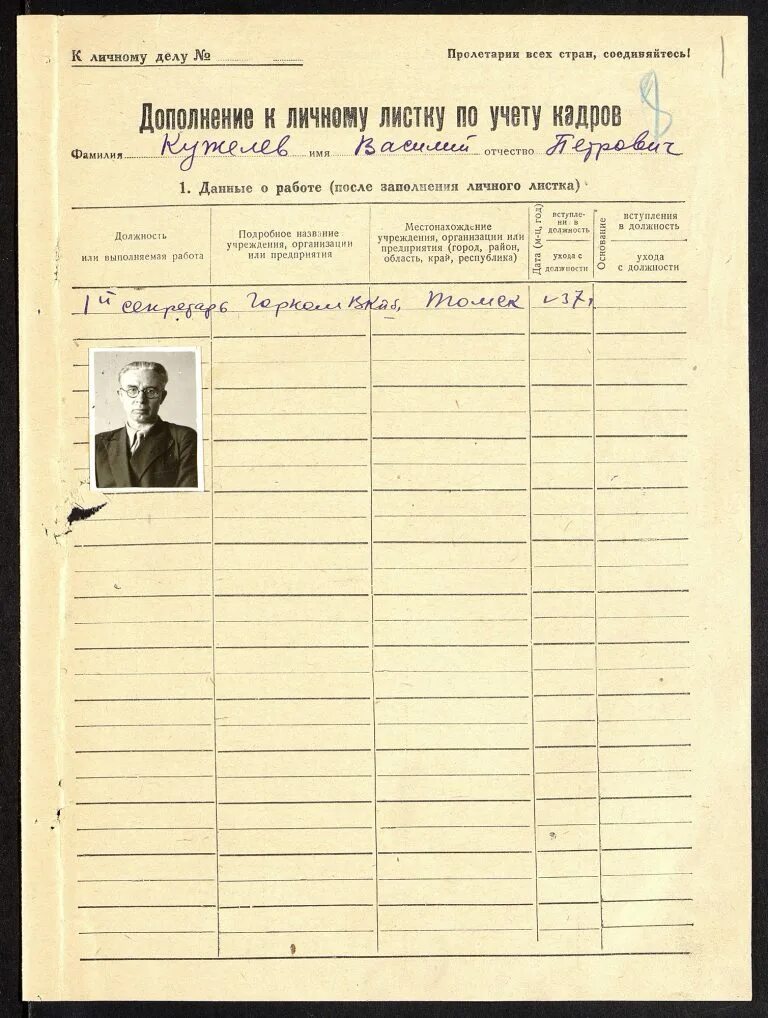 К личному делу №
Пролетарии всех стран, соединяйтесь!
Дополнение к личному листку по учету кадров
Фамилия Кужелев имя Василий отчество Петрович
1. Данные о работе (после заполнения личного листка)
Должность
или выполняемая работа
Подробное название
учреждения, организации
или предприятия
Местонахождение
учреждения, организации или
предприятия (город, район,
область, край, республика)
Дата (м-ц, год)
вступле-
ния в
должность
ухода с
должности
Основание
вступления
в должность
ухода
с должности
1й секретарь Горком ВКпб, Томск 37,